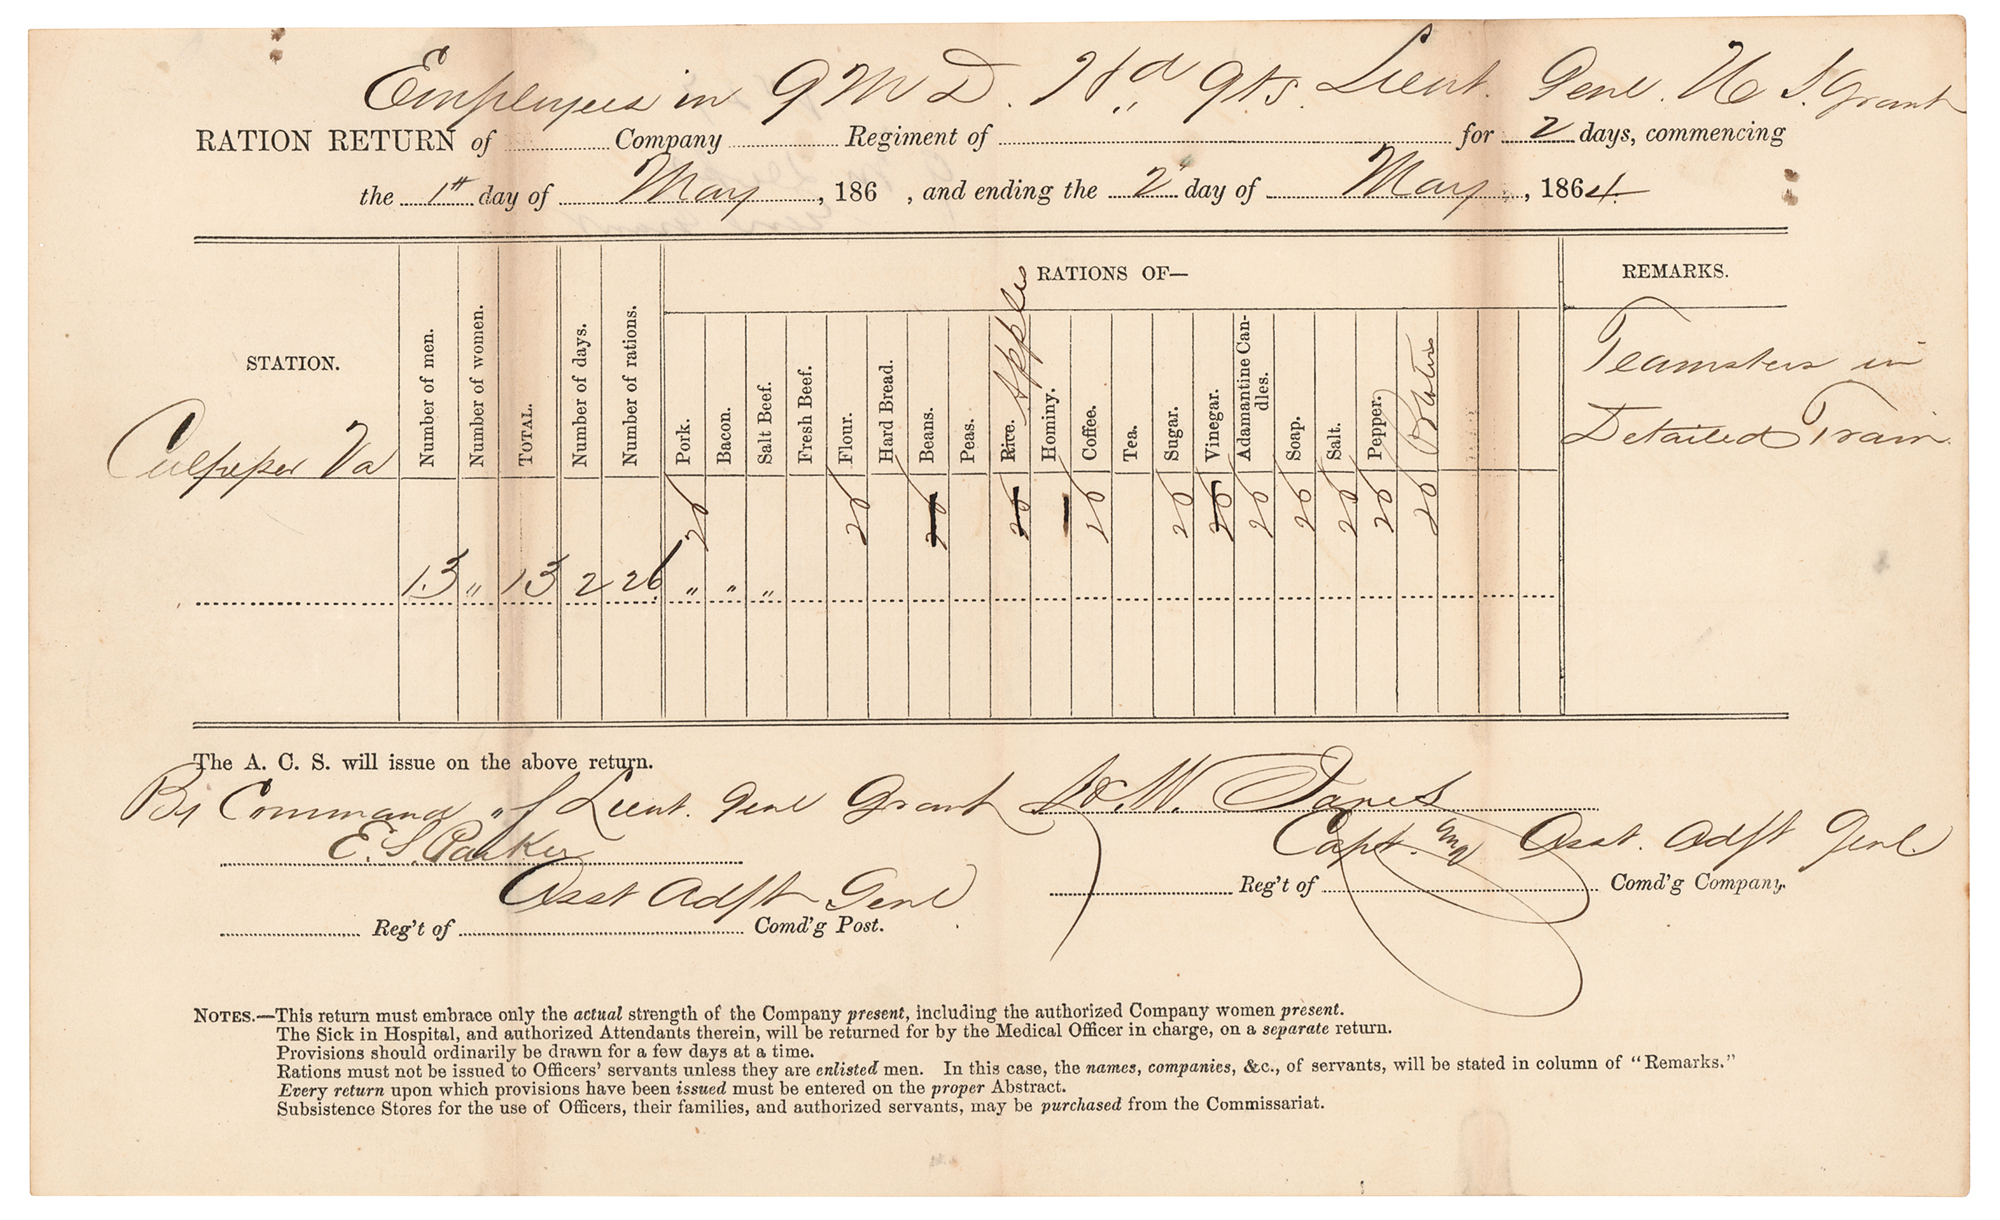 Employees in Q M D. Hd Qts. Lieut. Genl. U S. Grant
RATION RETURN of Company Regiment of for 2 days, commencing
the 1st day of May, 186 , and ending the 2d day of May, 1864.
STATION.
Number of men.
Number of women.
TOTAL.
Number of days.
Number of rations.
RATIONS OF—
Pork.
Bacon.
Salt Beef.
Fresh Beef.
Flour.
Hard Bread.
Beans.
Peas.
Rice. Apples
Hominy.
Coffee.
Tea.
Sugar.
Vinegar.
Adamantine Candles.
Soap.
Salt.
Pepper.
REMARKS.
Teamsters in
Detailed Train.
Culpeper Va
26 26 26 26 26 26 26 26 26 26 26 26
13 " 13 2 26 " " "
The A. C. S. will issue on the above return.
By Command of Lieut. Genl Grant
E. S. Parker
Asst Adjt Genl
Reg't of Comd'g Post.
W. Janes
Capt. and Asst. Adjt Genl.
Reg't of Comd'g Company.
NOTES.—This return must embrace only the actual strength of the Company present, including the authorized Company women present.
The Sick in Hospital, and authorized Attendants therein, will be returned for by the Medical Officer in charge, on a separate return.
Provisions should ordinarily be drawn for a few days at a time.
Rations must not be issued to Officers' servants unless they are enlisted men. In this case, the names, companies, &c., of servants, will be stated in column of "Remarks."
Every return upon which provisions have been issued must be entered on the proper Abstract.
Subsistence Stores for the use of Officers, their families, and authorized servants, may be purchased from the Commissariat.